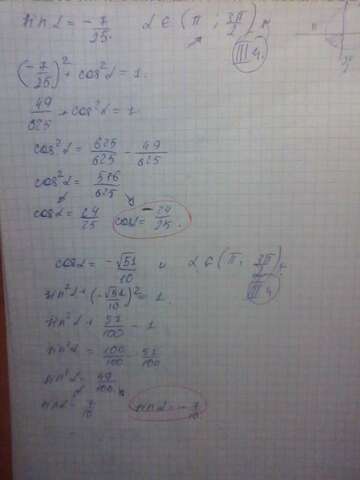 sin α = - 7/25. α ∈ (π ; 3π/2) и III ч.
(-7/25)² + cos²α = 1.
49/625 + cos²α = 1.
cos²α = 625/625 - 49/625
cos²α = 576/625
cosα = 24/25 cosα = -24/25.
cosα = -√51/10 и α ∈ (π ; 3π/2) III ч.
sin²α + (-√51/10)² = 1.
sin²α + 51/100 = 1
sin²α = 100/100 - 51/100
sin²α = 49/100
sinα = 7/10 sinα = -7/10